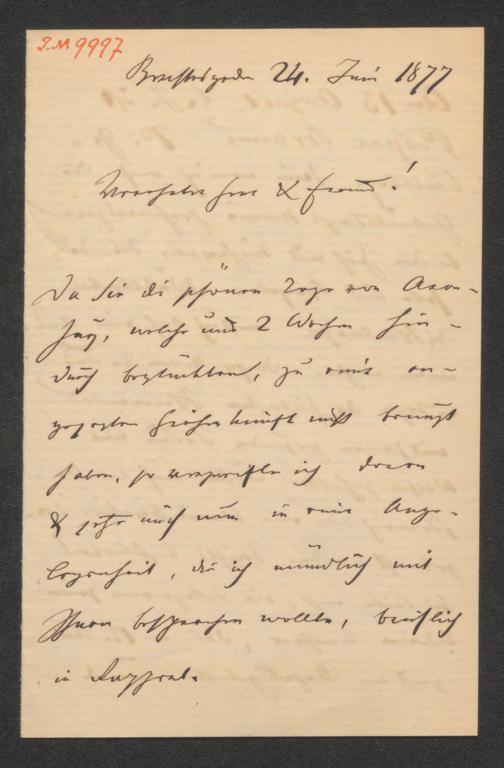 J.N. 9997
Berchtesgaden 24. Juni 1877
Verehrter Herr & Freund!
Da Sie die schönen Tage von Aran-
juez, welche uns 2 Wochen hin-
durch beglückten, zu einer an-
gesagten Hieherkunft nicht benützt
haben, so verzweifle ich daran
& setze mich nun in einer Ange-
legenheit, die ich mündlich mit
Ihnen besprechen wollte, brieflich
in Rapport.